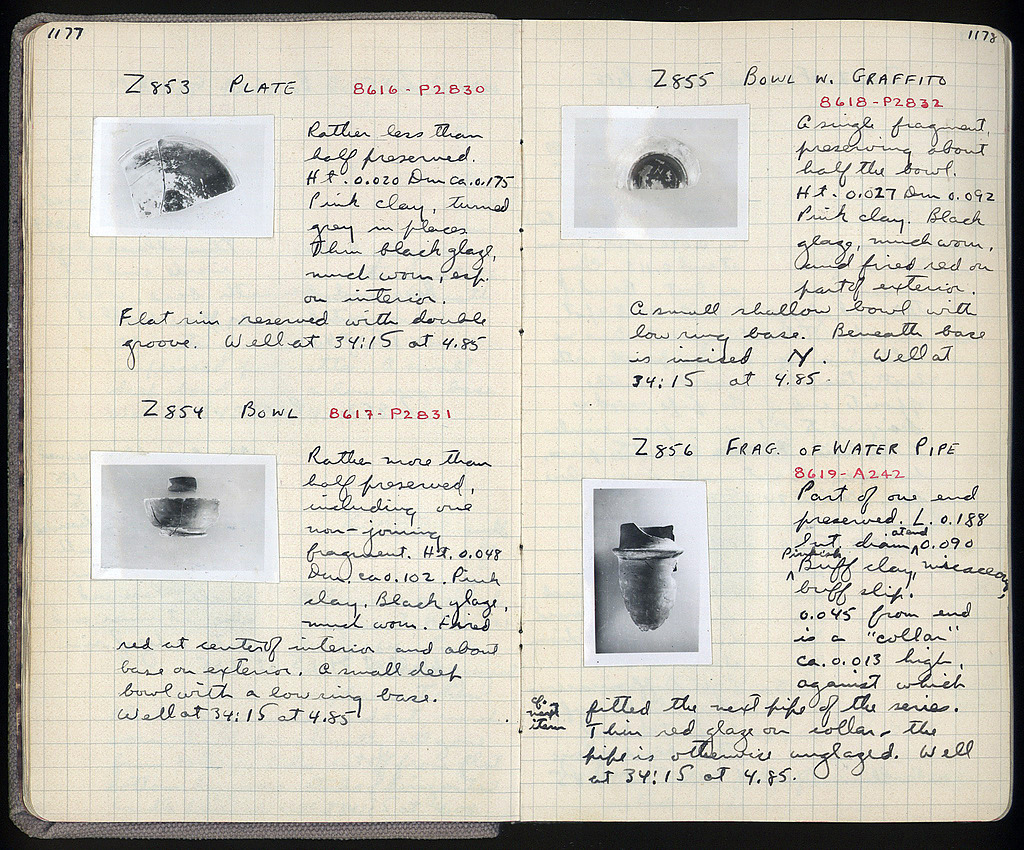 1177
Z853 PLATE 8616-P2830
Rather less than
half preserved.
Ht. 0.020 Dm ca. 0.175
Pink clay, turned
grey in places
Thin black glaze,
much worn, esp.
on interior.
Flat rim reserved with double
groove. Well at 34:15 at 4.85
Z854 BOWL 8617-P2831
Rather more than
half preserved,
including one
non-joining
fragment. Ht. 0.048
Dm. ca 0.102. Pink
clay. Black glaze,
much worn. Fired
red at center of interior and about
base on exterior. A small deep
bowl with a low ring base.
Well at 34:15 at 4.85
1178
Z855 BOWL W. GRAFFITO
8618-P2832
A single fragment,
preserving about
half the bowl.
Ht. 0.027 Dm 0.092
Pink clay. Black
glaze, much worn,
and fired red on
part of exterior.
A small shallow bowl with
low ring base. Beneath base
is incised N. Well at
34:15 at 4.85.
Z856 FRAG. OF WATER PIPE
8619-A242
Part of one end
preserved. L. 0.188
Int. diam at end 0.090
Pinkish Buff clay, micaceous,
buff slip.
0.045 from end
is a "collar"
ca. 0.013 high,
against which
cf. next item
fitted the next pipe of the series.
Thin red glaze on collar - the
pipe is otherwise unglazed. Well
at 34:15 at 4.85.